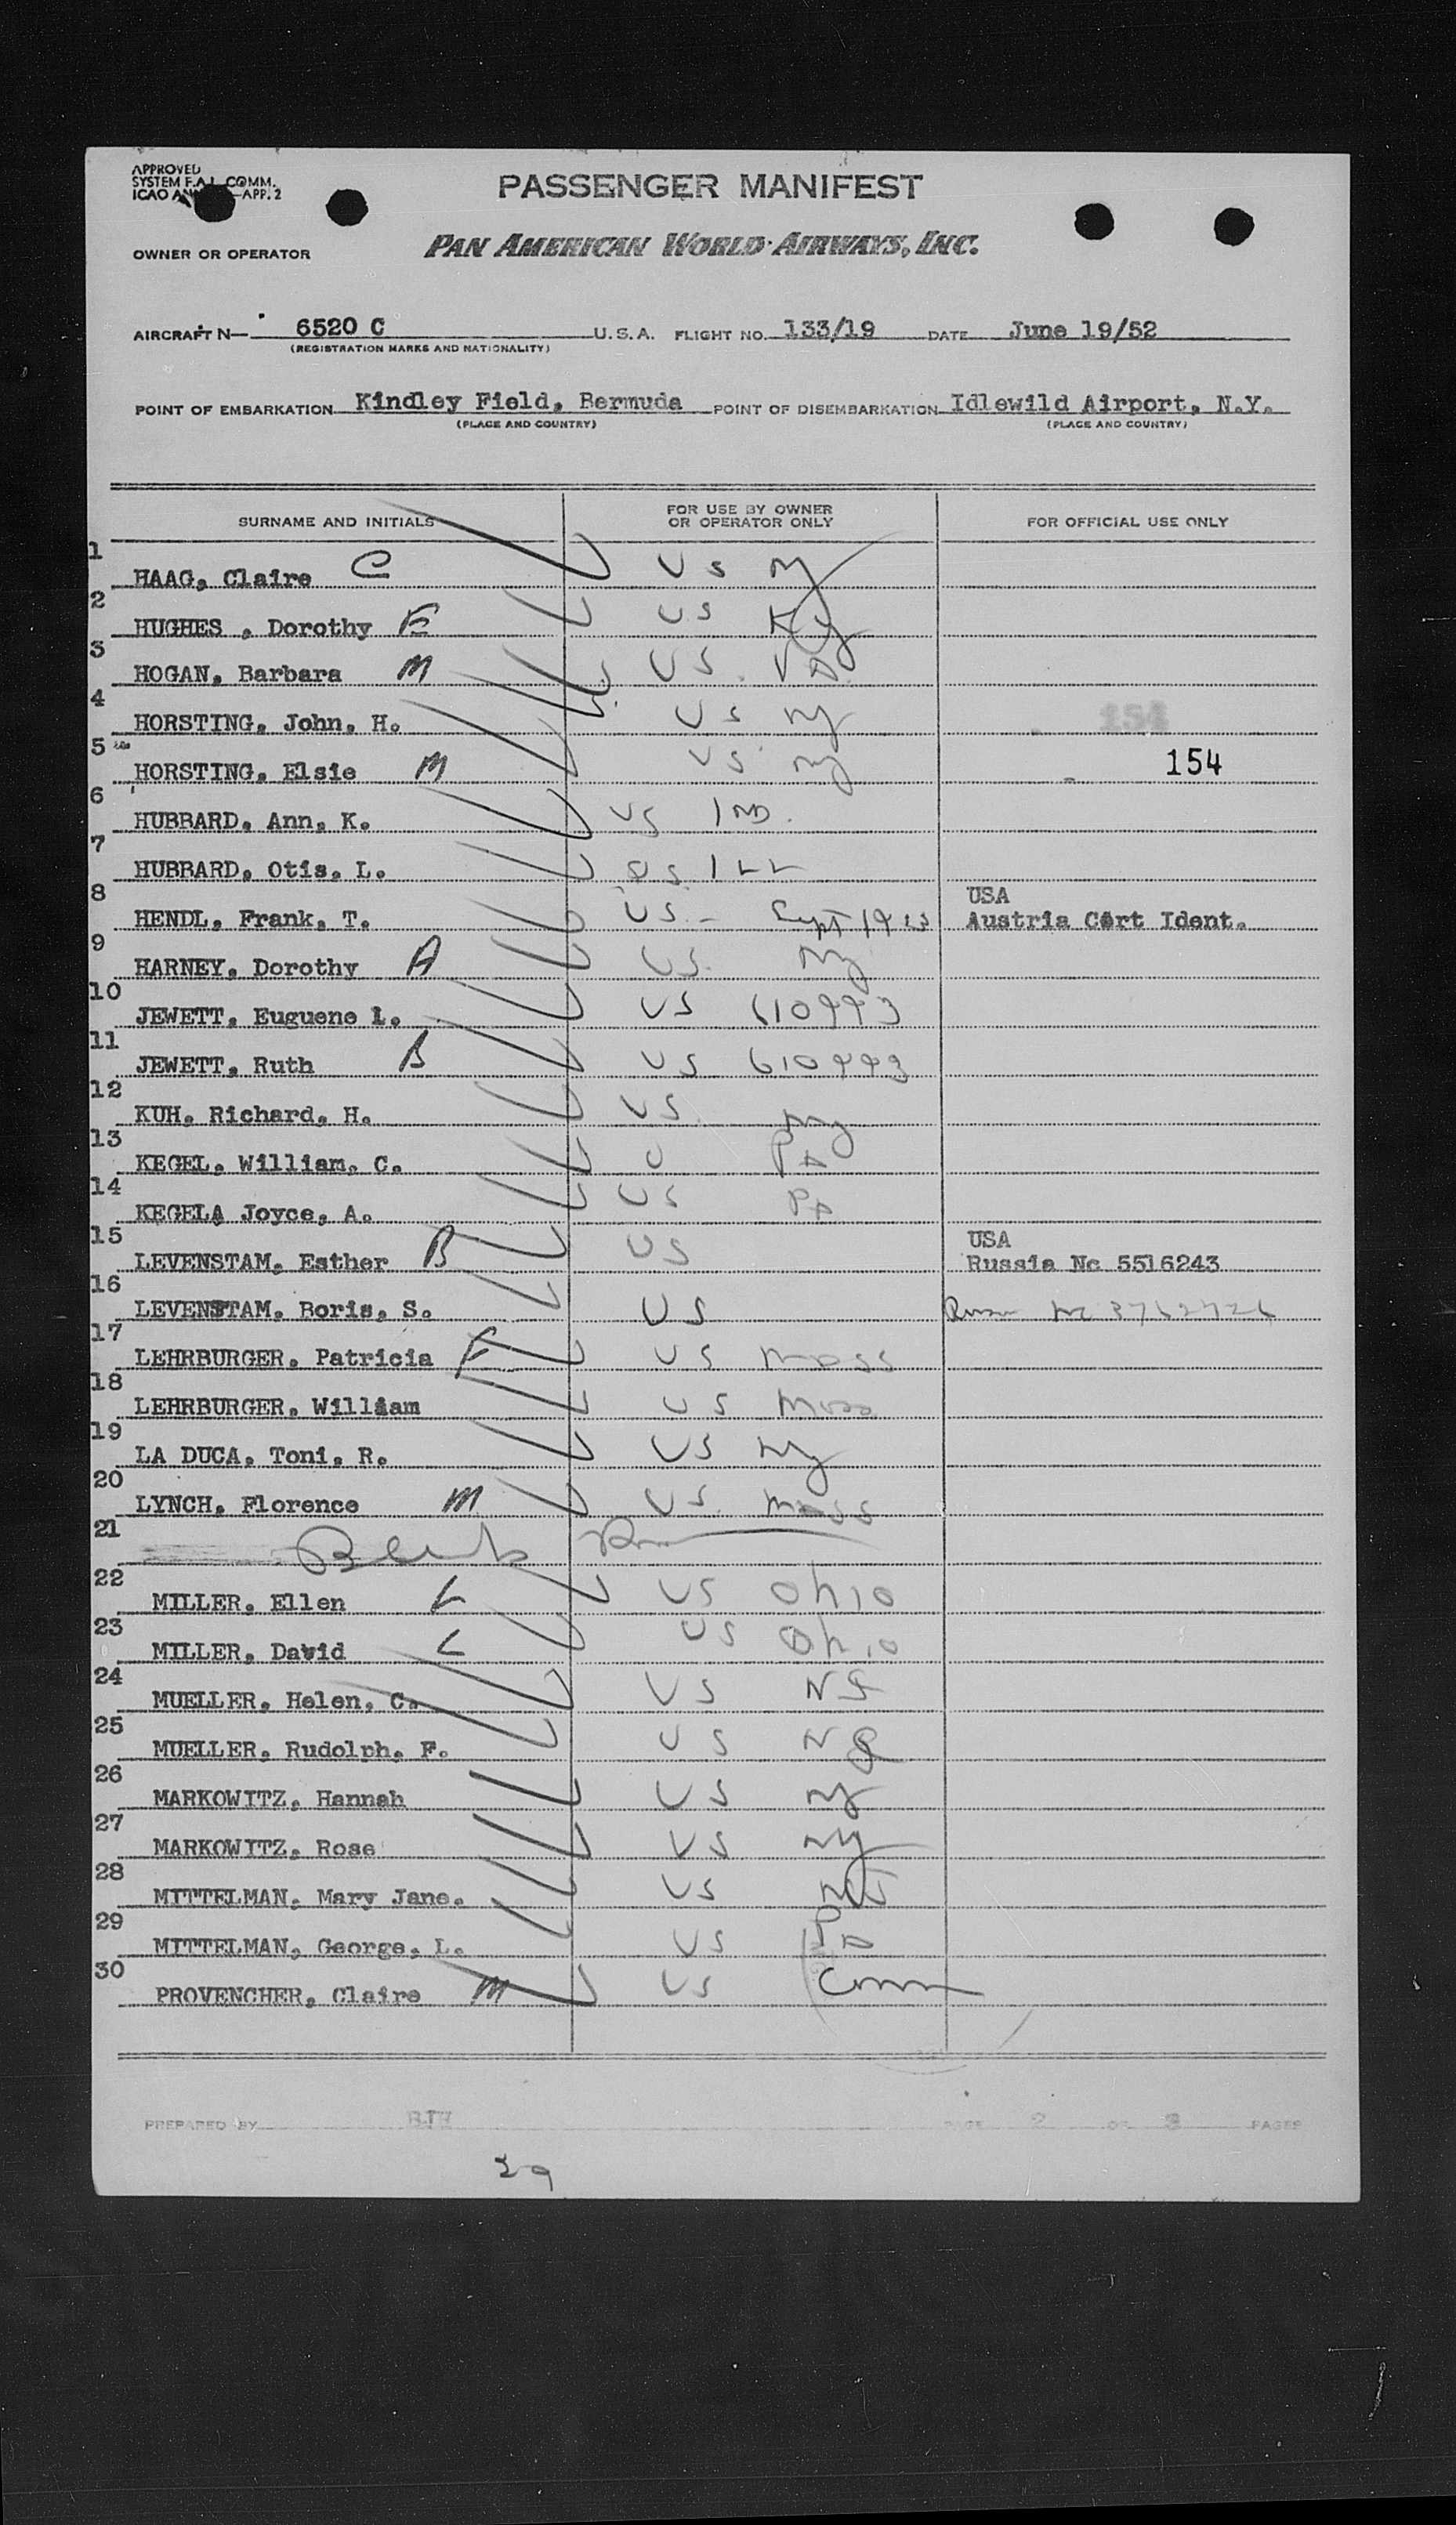 APPROVED
SYSTEM F.A.L. COMM.
ICAO AN APP. 2
PASSENGER MANIFEST
OWNER OR OPERATOR PAN AMERICAN WORLD AIRWAYS, INC.
AIRCRAFT N— 6520 C U.S.A. FLIGHT NO. 133/19 DATE June 19/52
(REGISTRATION MARKS AND NATIONALITY)
POINT OF EMBARKATION Kindley Field, Bermuda POINT OF DISEMBARKATION Idlewild Airport, N.Y.
(PLACE AND COUNTRY) (PLACE AND COUNTRY)
SURNAME AND INITIALS FOR USE BY OWNER OR OPERATOR ONLY FOR OFFICIAL USE ONLY
1 HAAG, Claire C US NY
2 HUGHES , Dorothy E US Ky
3 HOGAN, Barbara M US VA
4 HORSTING, John, H. US NY 154
5 HORSTING, Elsie M US NY 154
6 HUBBARD, Ann, K. US IND.
7 HUBBARD, Otis, L. US ILL
USA
8 HENDL, Frank, T. US - Sept Austria Cert Ident.
9 HARNEY, Dorothy A US NY
10 JEWETT, Euguene L. US 610993
11 JEWETT, Ruth B US 610993
12 KUH, Richard, H. US NY
13 KEGEL, William, C. U PA
14 KEGELA Joyce, A. US PA
USA
15 LEVENSTAM, Esther B US Russia Nc 5516243
16 LEVENSTAM, Boris, S. US NC 3762726
17 LEHRBURGER, Patricia F US Mass
18 LEHRBURGER, William US Mass
19 LA DUCA, Toni, R. US NY
20 LYNCH, Florence M US Mass
21
22 MILLER, Ellen L US Ohio
23 MILLER, David L US Ohio
24 MUELLER, Helen, C. US NJ
25 MUELLER, Rudolph, F. US NJ
26 MARKOWITZ, Hannah US NY
27 MARKOWITZ, Rose US NY
28 MITTELMAN, Mary Jane. US
29 MITTELMAN, George, L. US PA
30 PROVENCHER, Claire M US Conn
PREPARED BY PAGE 2 OF 3 PAGES
29